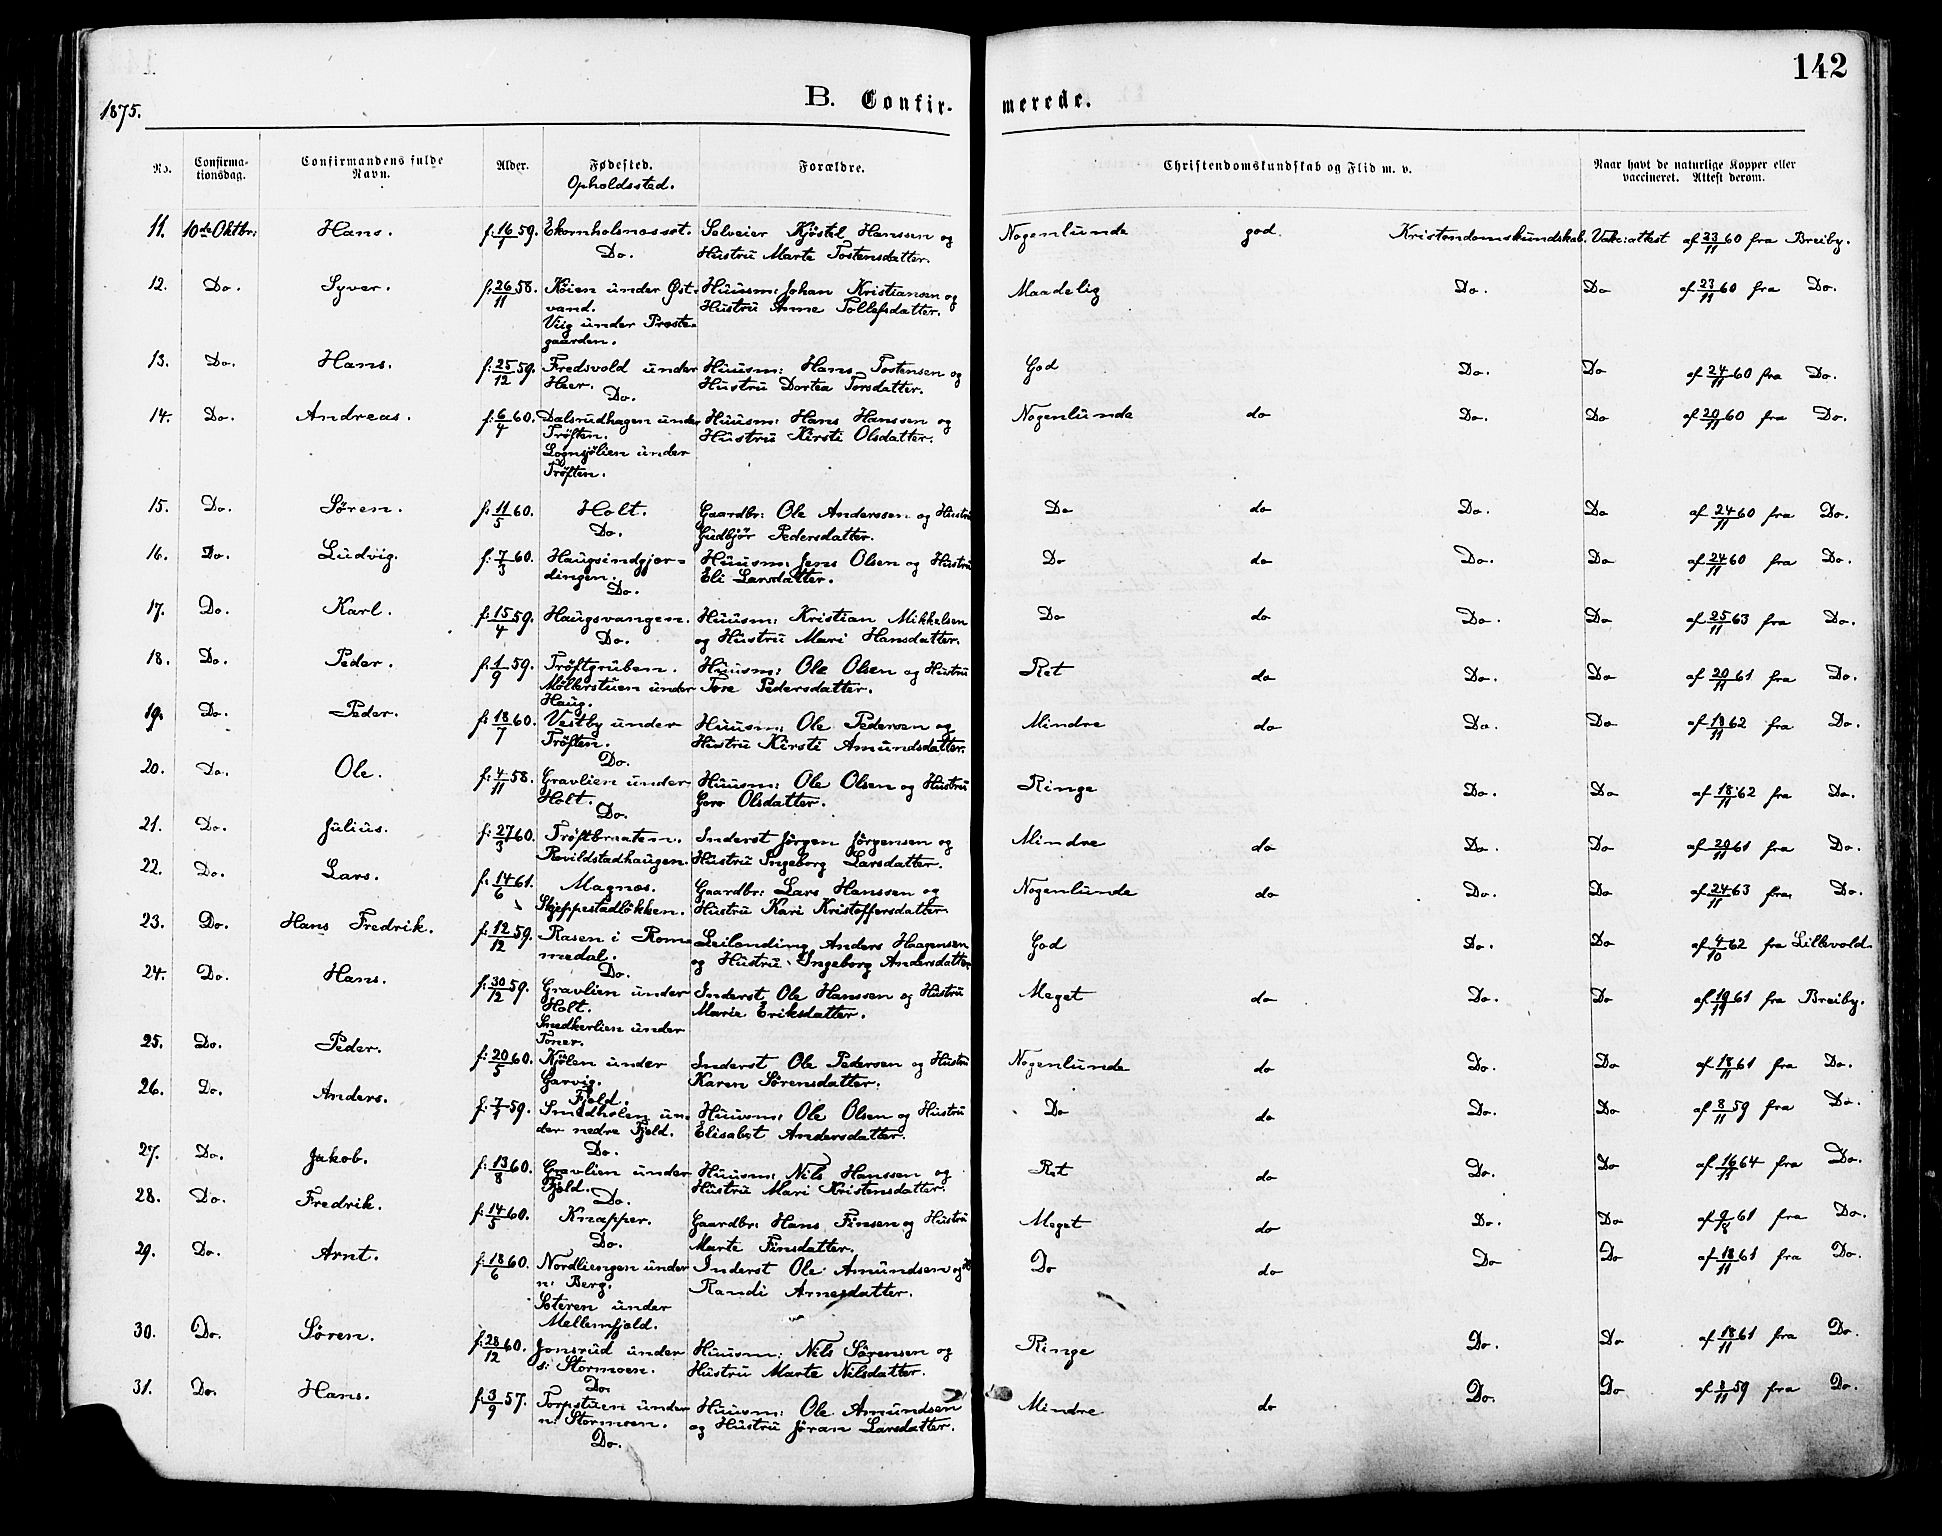 142
1875.
B. Confir- merede.
No. Confirma- tionsdag. Confirmandens fulde Navn. Alder. Fødested. Opholdssted. Forældre. Christendomskundskab og Flid m. v. Naar havt de naturlige Kopper eller vaccineret. Attest derom.
11. 10de Oktbr: Hans. f: 16/1 59. Ekornholsmosset. Selveier Kjöstel Hanssen og Nogenlunde god. Kristendomskundskab. Vakc:attest af 23/11 60 fra Breiby.
Do. Hustru Marte Tostensdatter.
12. Do. Syver. f: 26/11 58. Köien under Øst- Huusm: Johan Kristiansen og Maadelig Do. Do af 23/11 60 fra Do.
vand. Hustru Anne Tollefsdatter.
Viig under Preste-
gaarden.
13. Do. Hans. f: 25/12 59. Fredsvold under Huusm: Hans Tostensen og God Do. Do af 24/11 60 fra Do.
Heer. Hustru Dortea Torsdatter.
Do.
14. Do. Andreas. f: 6/4 60. Dalsrudhagen under Huusm: Hans Hanssen og Nogenlunde do Do. Do af 20/11 60 fra Do.
Tröften. Hustru Kirsti Olsdatter.
Lognsjölien under
Tröften.
15. Do. Sören. f: 11/5 60. Holt. Gaardbr: Ole Anderssen og Hustru Do do Do. Do af 24/11 60 fra Do.
Do. Gudbjör Pedersdatter.
16. Do. Ludvig. f: 7/3 60. Haugsindgjær- Huusm: Jens Olsen og Hustru Do do Do. Do af 24/11 60 fra Do.
dingen. Eli Larsdatter.
Do.
17. Do. Karl. f: 15/4 59. Haugsvangen. Huusm: Kristian Mikkelsen Do do Do. Do af 25/11 63 fra Do.
Do. og Hustru Mari Hansdatter.
18. Do. Peder. f: 1/9 59. Tröftgruben. Huusm: Ole Olsen og Hustru Ret do Do. Do af 20/11 61 fra Do.
Möllerstuen under Tore Pedersdatter.
Haug.
19. Do. Peder. f: 18/7 60. Vestby under Huusm: Ole Pedersen og Mindre do Do. Do af 18/11 62 fra Do.
Tröften. Hustru Kirsti Amundsdatter.
Do.
20. Do. Ole. f: 4/11 58. Gravlien under Huusm: Ole Olsen og Hustru Ringe Do. Do af 18/11 62 fra Do.
Holt. Goro Olsdatter.
Do.
21. Do. Julius. f: 27/3 60. Tröftbraaten. Inderst Jörgen Jörgensen og Mindre do Do. Do af 20/11 61 fra Do.
Revildstadhaugen. Hustru Ingeborg Larsdatter.
22. Do. Lars. f: 14/6 61. Magnæs. Gaardbr: Lars Hanssen og Nogenlunde do Do. Do af 24/11 63 fra Do.
Skjeppestadlökken. Hustru Kari Kristoffersdatter.
23. Do. Hans Fredrik. f: 12/12 59. Rasen i Rom- Leilending Anders Haagensen God Do. Do af 4/10 62 fra Lillevold.
medal. og Hustru Ingeborg Andersdatter.
Do.
24. Do. Hans. f: 30/12 59. Gravlien under Inderst Ole Hanssen og Hustru Meget do Do. Do af 19/11 61 fra Breiby.
Holt. Marie Eriksdatter.
Snedkerlien under
Toner.
25. Do. Peder. f: 20/5 60. Kjölen under Inderst Ole Pedersen og Hustru Nogenlunde do Do. Do af 18/11 61 fra Do.
Garvig. Karen Sörensdatter.
Fjeld.
26. Do. Anders. f: 7/1 59. Smedholen un- Huusm: Ole Olsen og Hustru Do do Do. Do af 8/11 59 fra Do.
der nedre Fjeld. Elisabet Andersdatter.
Do.
27. Do. Jakob. f: 13/8 60. Gravlien under Huusm: Nils Hanssen og Ret do Do. Do af 16/11 64 fra Do.
Fjeld. Hustru Mari Kristensdatter.
Do.
28. Do. Fredrik. f: 14/5 60. Knapper. Gaardbr: Hans Finsen og Hustru Meget do Do. Do af 9/18 61 fra Do.
Do. Marte Finsdatter.
29. Do. Arnt. f: 18/6 60. Nordliengen under Inderst Ole Amundsen og H Do do Do Do af 18/11 61 fra Do.
n: Berg. Randi Arnesdatter.
Soteren under
Mellemfjeld.
30. Do. Sören. f: 28/12 60. Jonsrud under Huusm: Nils Sörensen og Ringe Do. Do af 18/11 61 fra Do.
s: Stormoen. Hustru Marte Nilsdatter.
Do.
31. Do. Hans. f: 3/9 57. Torpstuen under Huusm: Ole Amundsen Mindre do Do. Do af 8/11 59 fra Do.
n: Stormoen. og Hustru Jöran Larsdatter.
Do.